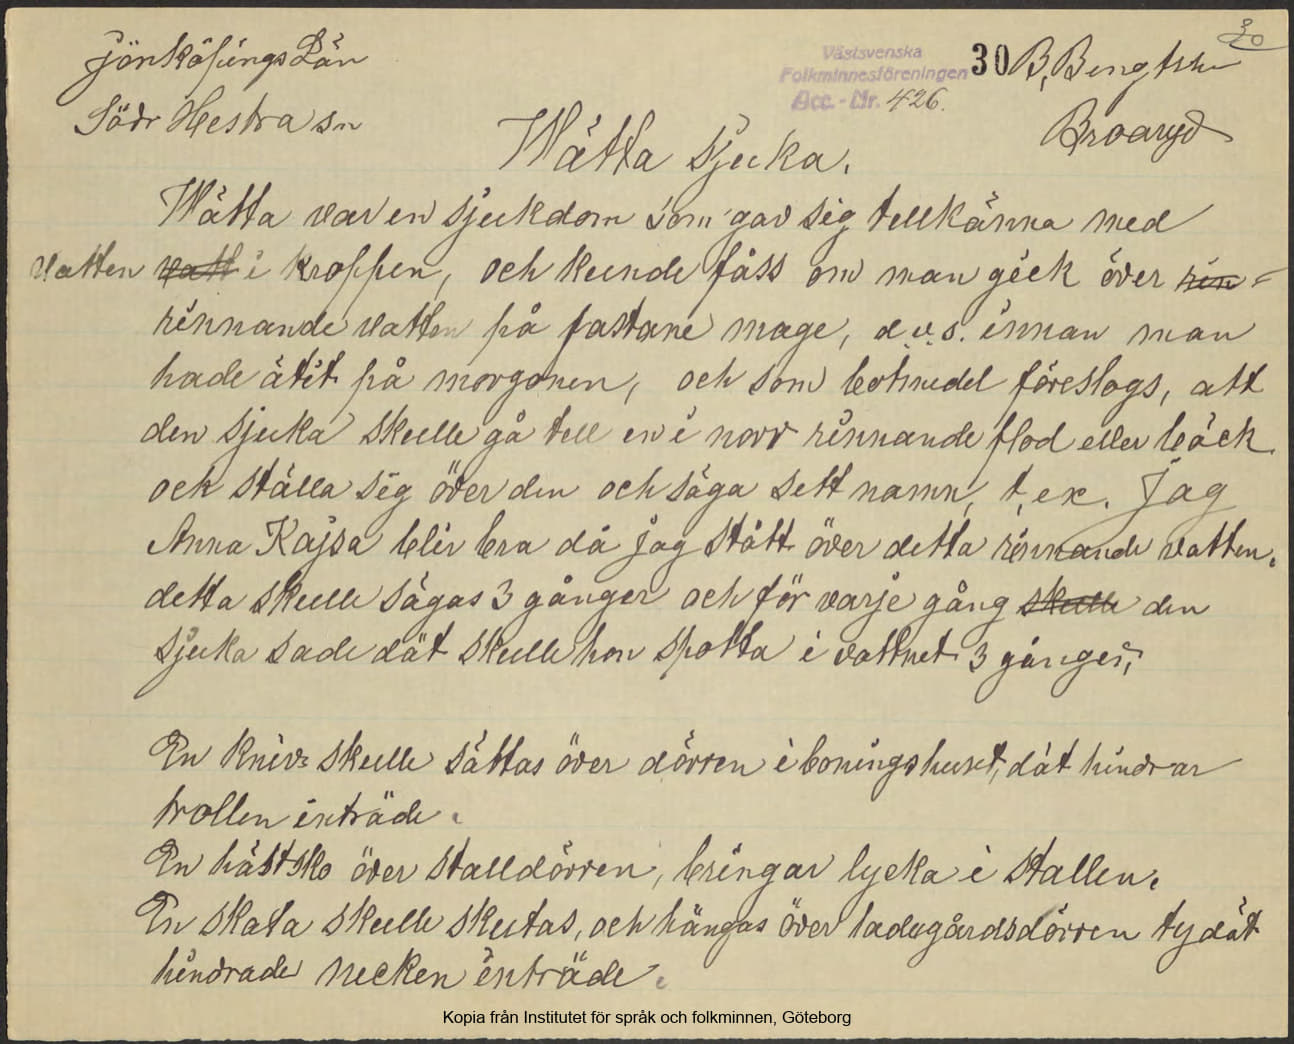 Jönköpings Län
Södr Hestra sn
Västsvenska
Folkminnesföreningen
Acc. - Nr. 426.
30 B. Bengtsson
30
Broaryd
Wätta sjuka.
Wätta var en sjukdom som gav sig tillkänna med
vatten vatt i kroppen, och kunde fåss om man gick över rin-
rinnande vatten på fastane mage, d.v.s. innan man
hade ätit på morgonen, och som botmedel föreslogs, att
den sjuka skulle gå till en i norr rinnande flod eller bäck
ock ställa sig över den och säga sitt namn, t.ex. Jag
Anna Kajsa blir bra då jag stått över detta rinnande vatten.
detta skulle sägas 3 gånger och för varje gång skulle den
sjuka sade dät skulle hon spotta i vattnet 3 gånger,
En kniv skulle sättas över dörren i boningshuset, dät hindrar
trollen inträde.
En hästsko över stalldörren, bringar lycka i stallen.
En skata skulle skutas, och hängas över ladugårdsdörren ty dät
hindrade necken inträde.
Kopia från Institutet för språk och folkminnen, Göteborg